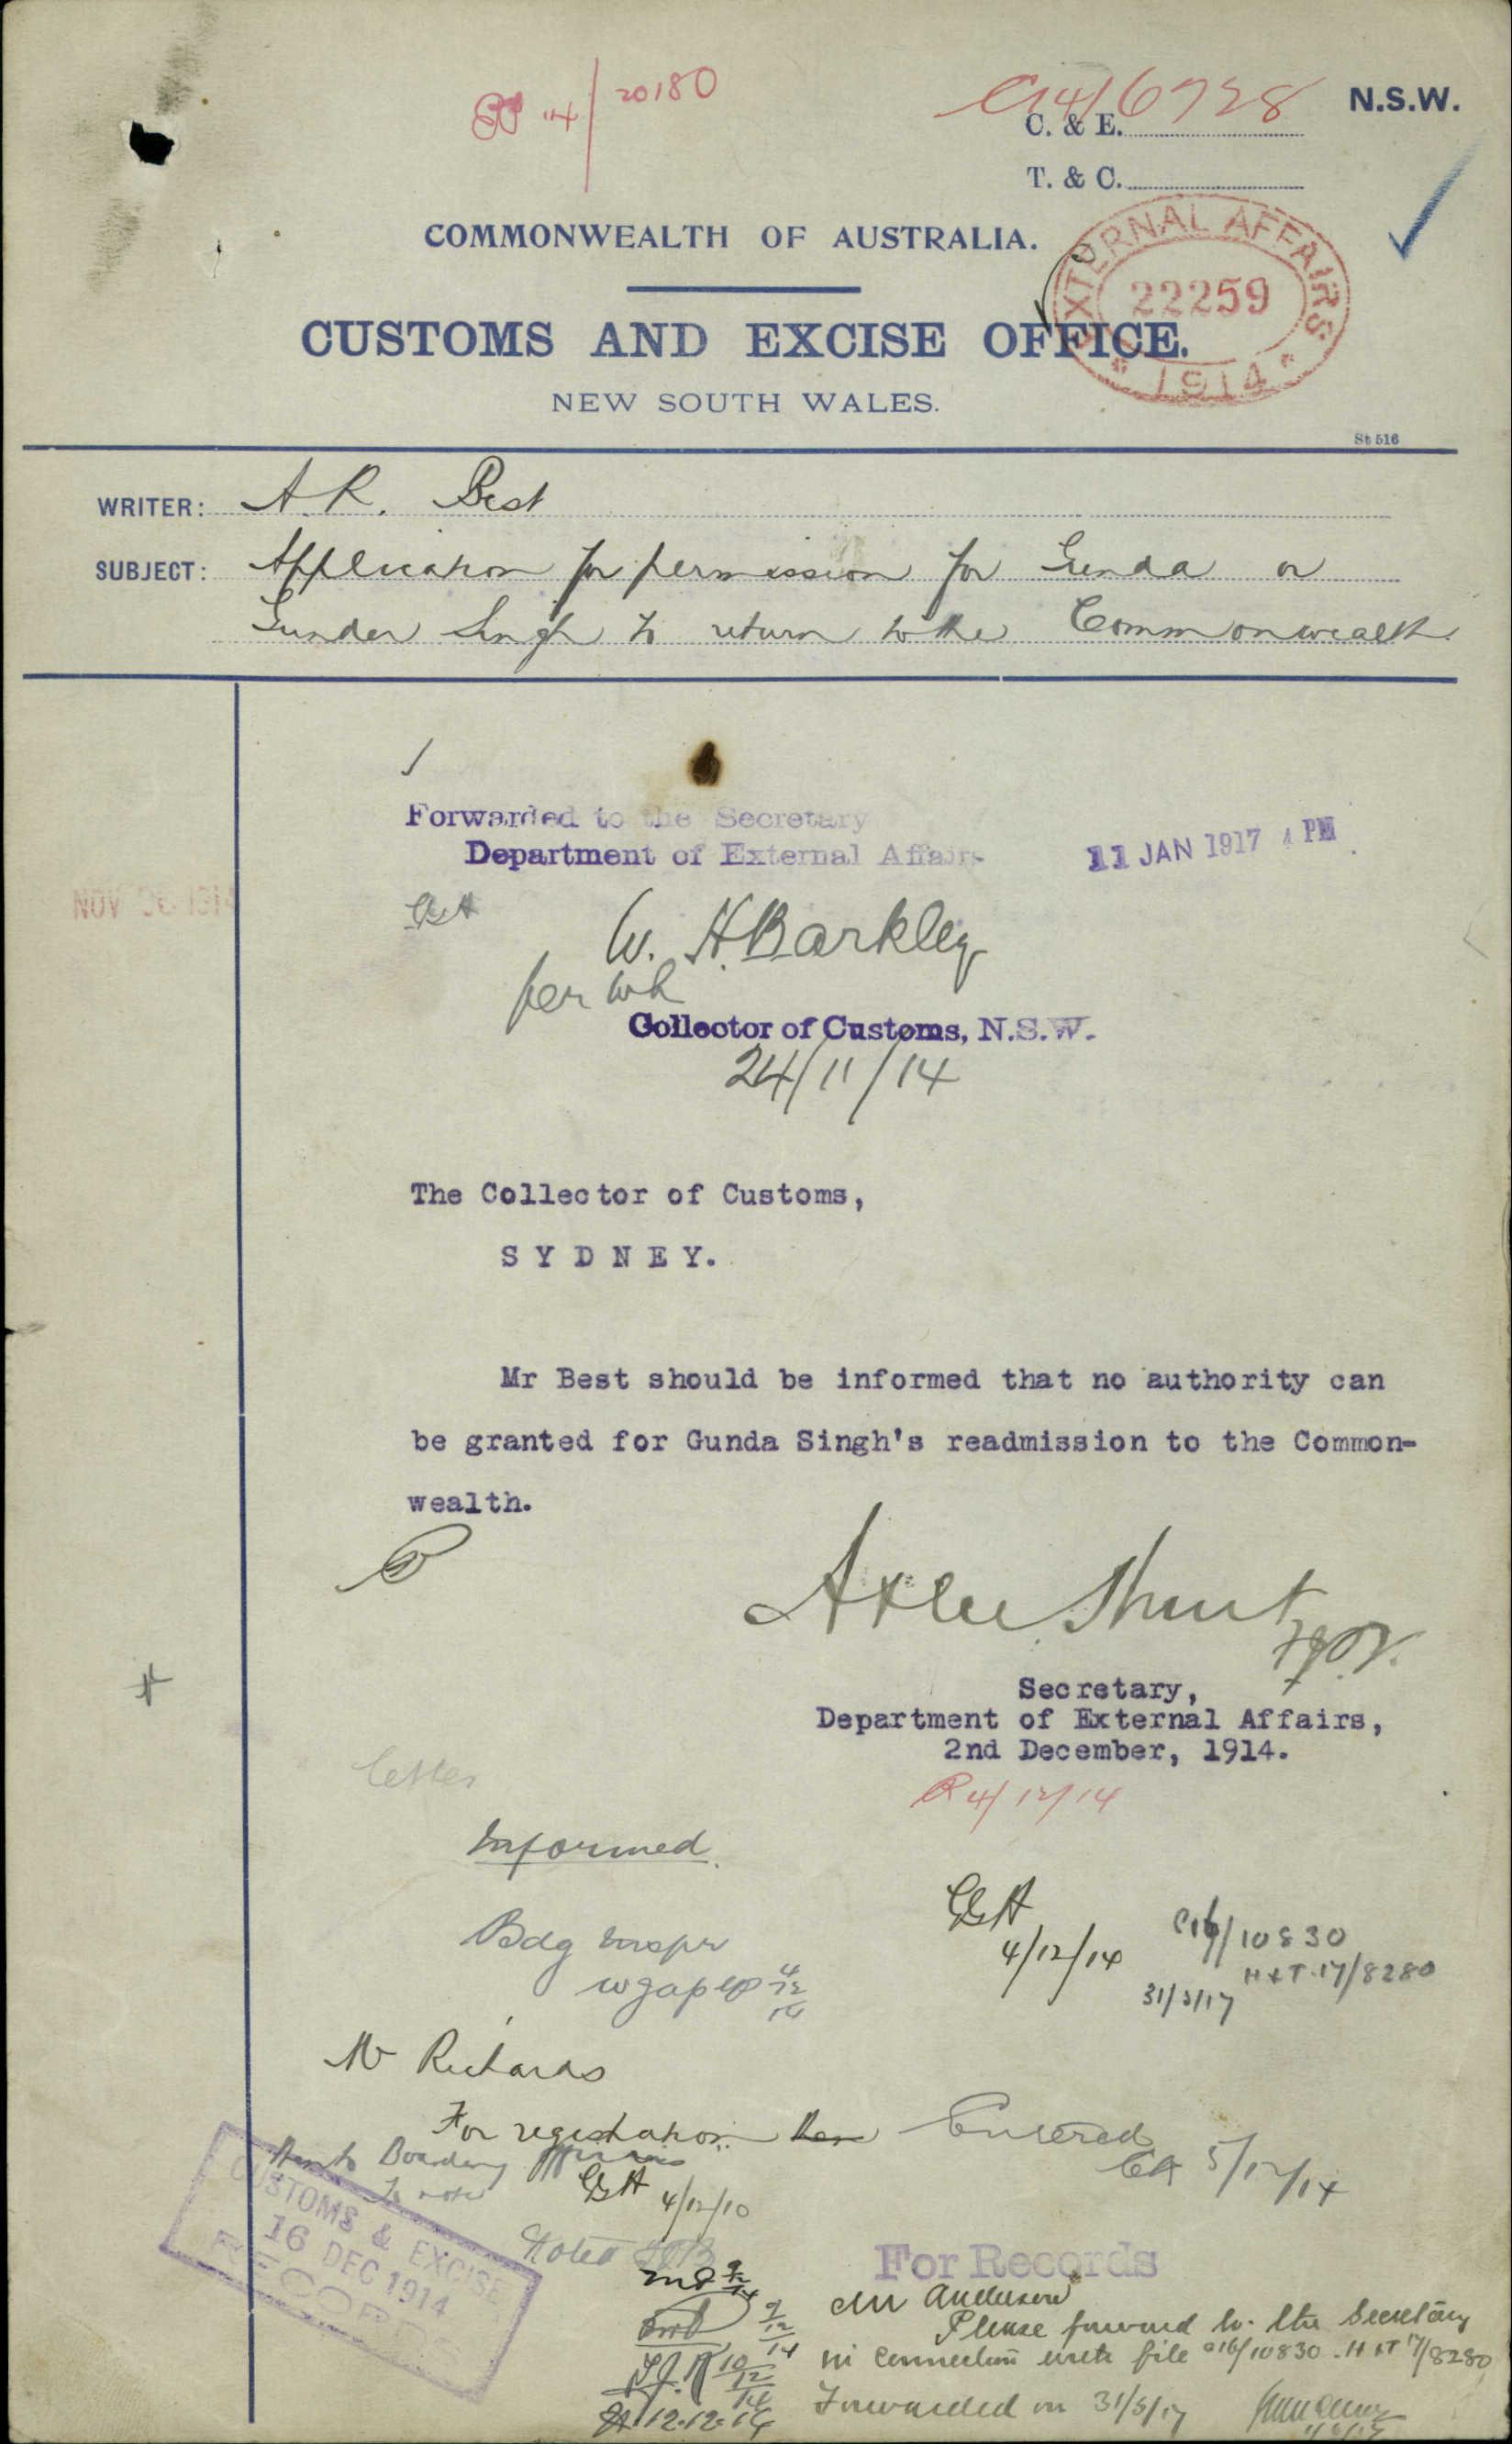 14/20180
C14/6728
N.S.W.
C. & E.
T. & C.
COMMONWEALTH OF AUSTRALIA.
EXTERNAL AFFAIRS
22259
1914
CUSTOMS AND EXCISE OFFICE.
NEW SOUTH WALES.
St 516
WRITER: A. R. Best
SUBJECT: Application for permission for Gunda or
Gunder Singh to return to the Commonwealth.
Forwarded to the Secretary
Department of External Affairs
11 JAN 1917 4 PM
NOV 26 1914
W. H. Barkley
per
Collector of Customs, N.S.W.
24/11/14
The Collector of Customs,
SYDNEY.
Mr Best should be informed that no authority can
be granted for Gunda Singh's readmission to the Common-
wealth.
Atlee Hunt
Secretary,
Department of External Affairs,
2nd December, 1914.
R 4/12/14
Letter
Informed.
GGA
4/12/14
C16/10830
H & T. 17/8280
31/5/17
Bdg Inspr
4/12/14
Mr Richards
For registration
Entered
5/12/14
Then to Boarding
To note
GGA 4/12/10
CUSTOMS & EXCISE
16 DEC 1914
RECORDS
Noted
9/12/14
9/12/14
10/12/14
12.12.14
For Records
Mr Anderson
Please forward to the Secretary
in connection with file C16/10830. H & T 17/8280
Forwarded on 31/5/17